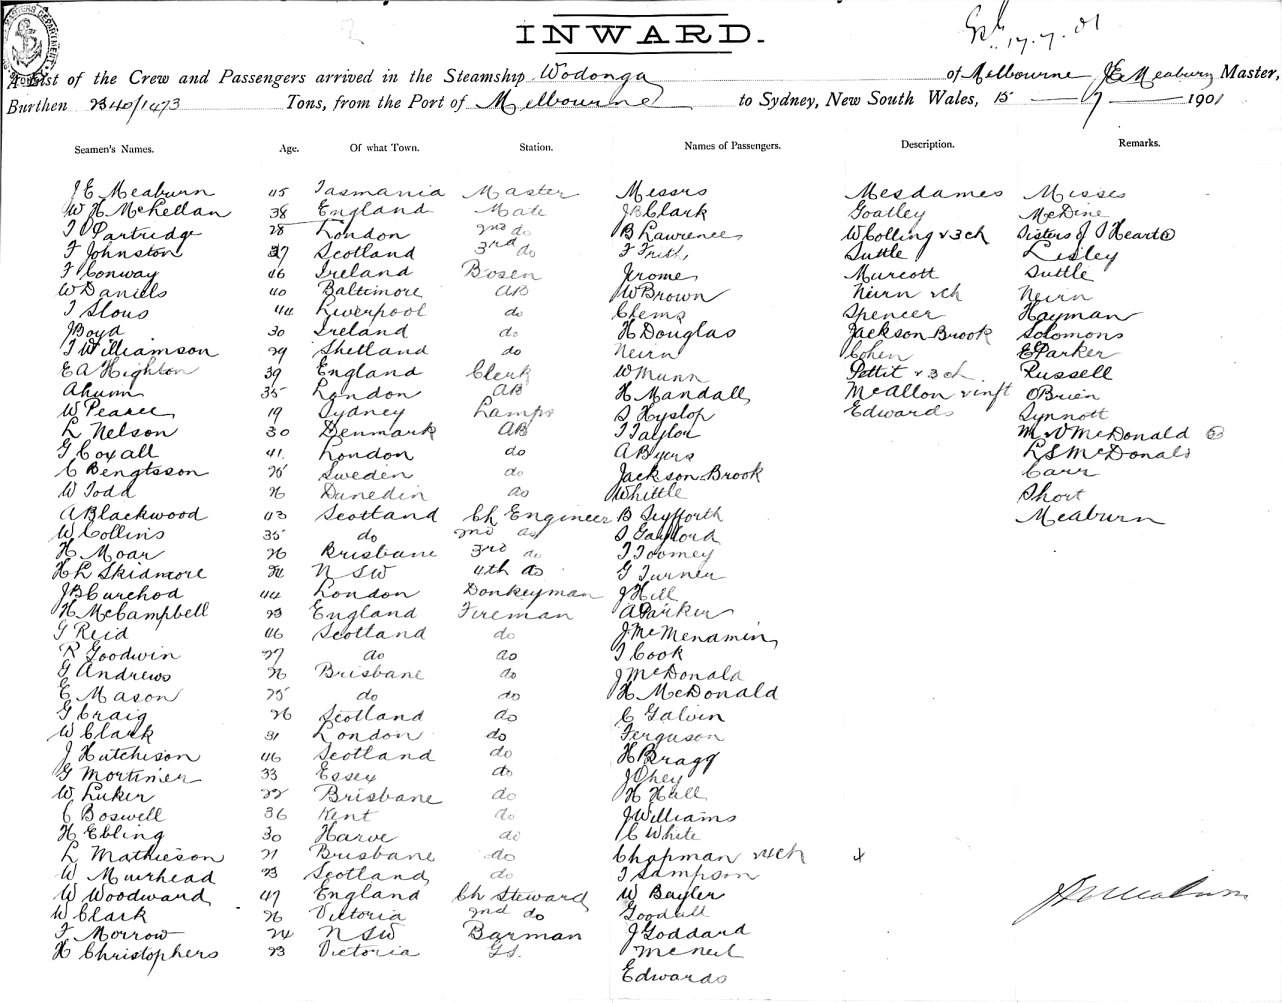 INWARD.
17.7.01
A List of the Crew and Passengers arrived in the Steamship Wodonga of Melbourne J E Meaburn Master,
Burthen 2340/1473 Tons, from the Port of Melbourne to Sydney, New South Wales, 15 — 7 — 1901
Seamen's Names. Age. Of what Town. Station. Names of Passengers. Description. Remarks.
J E Meaburn 45 Tasmania Master Messrs Mesdames Misses
W H McLellan 38 England Mate J B Clark Goatley McDine
T Partridge 28 London 2nd do B Lawrence W Colling & 3 ch Sisters of S Heart 2
F Johnston 27 Scotland 3rd do F Frith Suttle Lisley
F Conway 46 Ireland Bosen Jerome Murcott Suttle
W Daniels 40 Baltimore AB W Brown Neirn & ch Neirn
T Slous 44 Liverpool do Clems Spencer Hayman
J Boyd 30 Ireland do H Douglas Jackson Brook Solomons
T Williamson 29 Shetland do Neirn Cohen E Parker
E A Highton 39 England Clerk W Munn Pettit & 3 ch Russell
A Lunn 35 London AB H Mandall McAllon & inft OBrien
W Pearce 19 Sydney Lamps S Hyslop Edwards Synnott
L Nelson 30 Denmark AB T Taylor M & V McDonald 2
G Coxall 41 London do A Byers L S McDonald
C Bengtsson 25 Sweden do Jackson Brook Carr
W Todd 26 Dunedin do Whittle Short
A Blackwood 43 Scotland Ch Engineer B Seyfforth Meaburn
W Collins 35 do 2nd do S Gayford
H Moar 26 Brisbane 3rd do T Toomey
H L Skidmore 24 NSW 4th do G Turner
J B Curchod 44 London Donkeyman J Hill
H McCampbell 23 England Fireman A Parker
G Reid 46 Scotland do J McMenamin
R Goodwin 27 do do T Cook
G Andrews 26 Brisbane do J McDonald
E Mason 25 do do H McDonald
G Craig 26 Scotland do C Galvin
W Clark 31 London do Ferguson
J Hutchison 46 Scotland do H Bragg
G Mortimer 33 Essex do J Ohey
W Luker 22 Brisbane do H Hall
C Boswell 36 Kent do J Williams
H Ebling 30 Harve do C White
L Mathieson 21 Brisbane do Chapman & 4 ch
W Muirhead 23 Scotland do T Sampson
W Woodward 47 England Ch Steward W Bayler
W Clark 26 Victoria 2nd do Goodall
F Morrow 24 NSW Barman J Goddard
H Christophers 23 Victoria GS. McNeil
Edwards
J E Meaburn